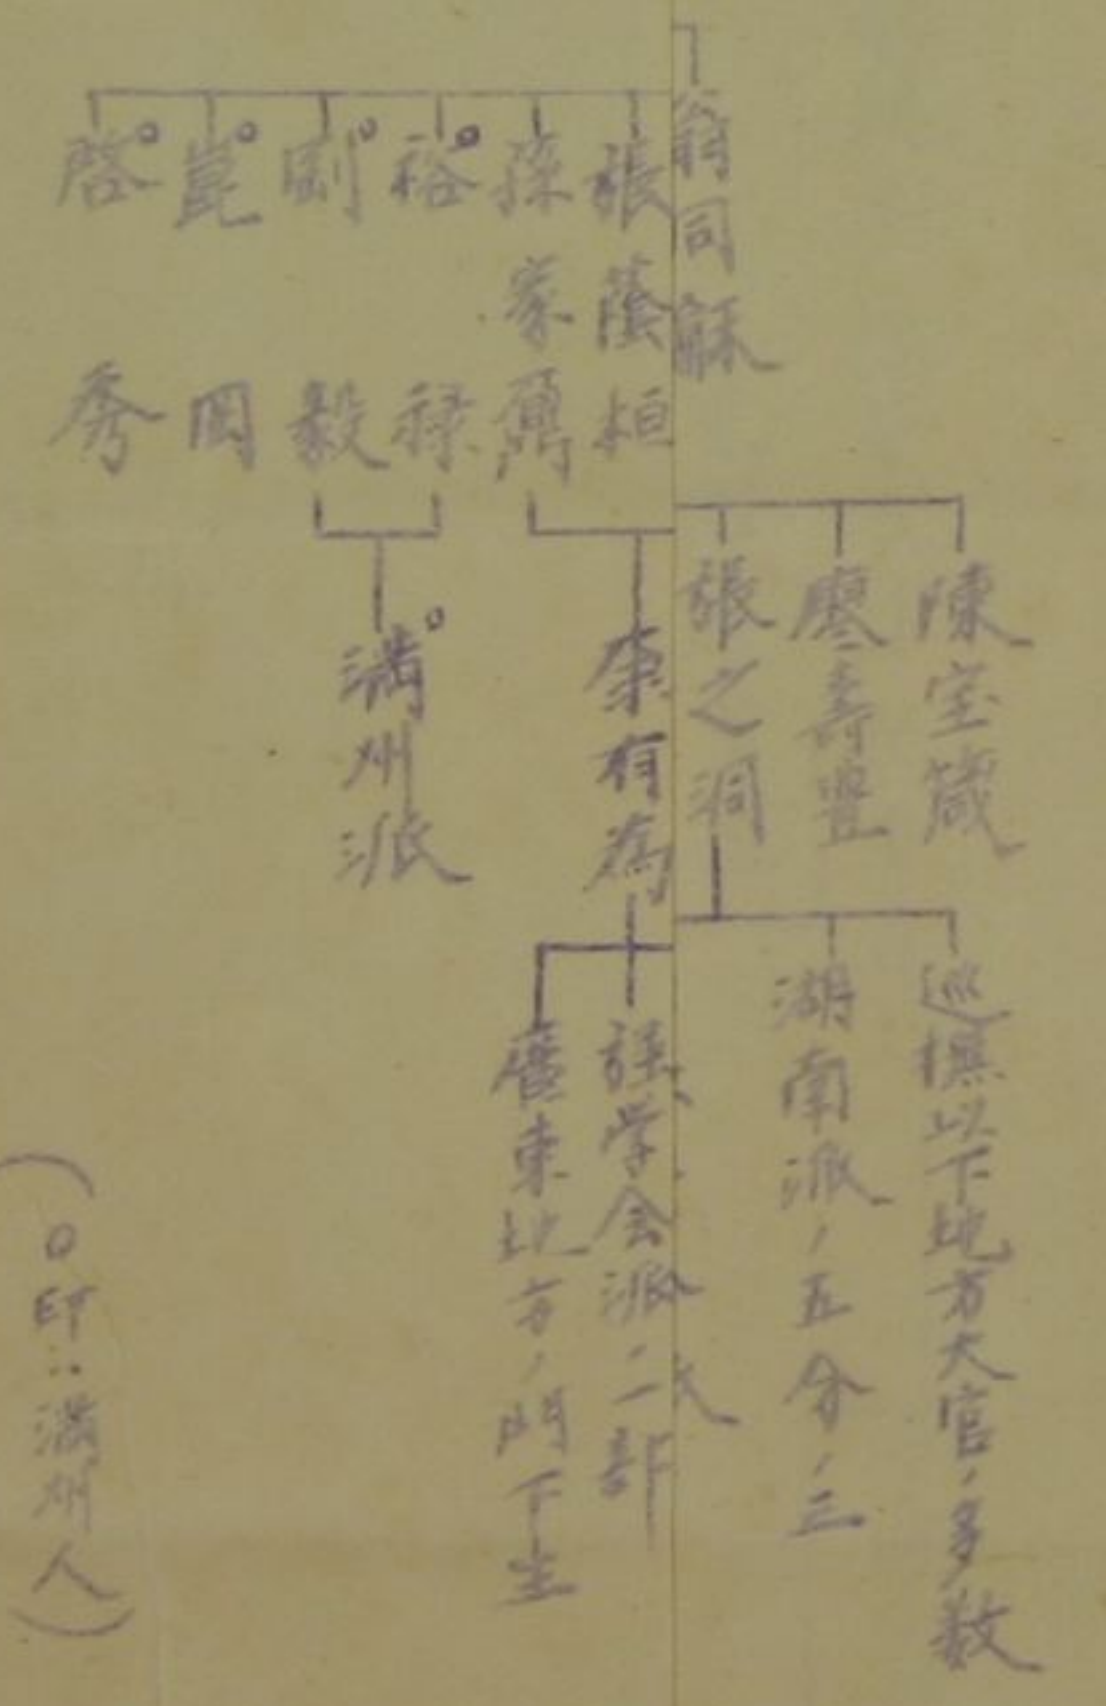 翁同龢
張蔭桓
孫家鼐
裕禄
剛毅
崑岡
啓秀
陳宝箴
廖寿豊
張之洞
康有為
満州派
巡撫以下地方大官ノ多数
湖南派ノ五分ノ三
強学会派ノ一部
廣東地方ノ門下生
(○印ハ満州人)